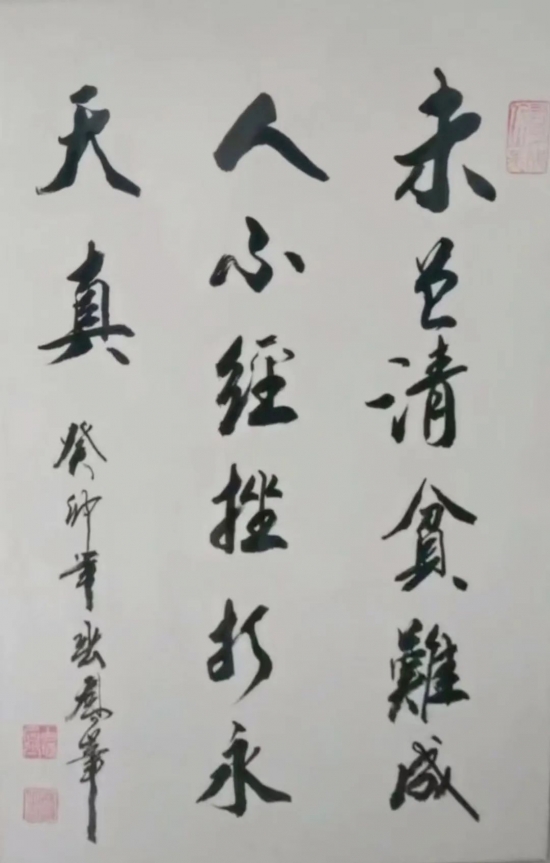 未曾清貧難成
人不經挫折永
天真
癸卯年張鳳華